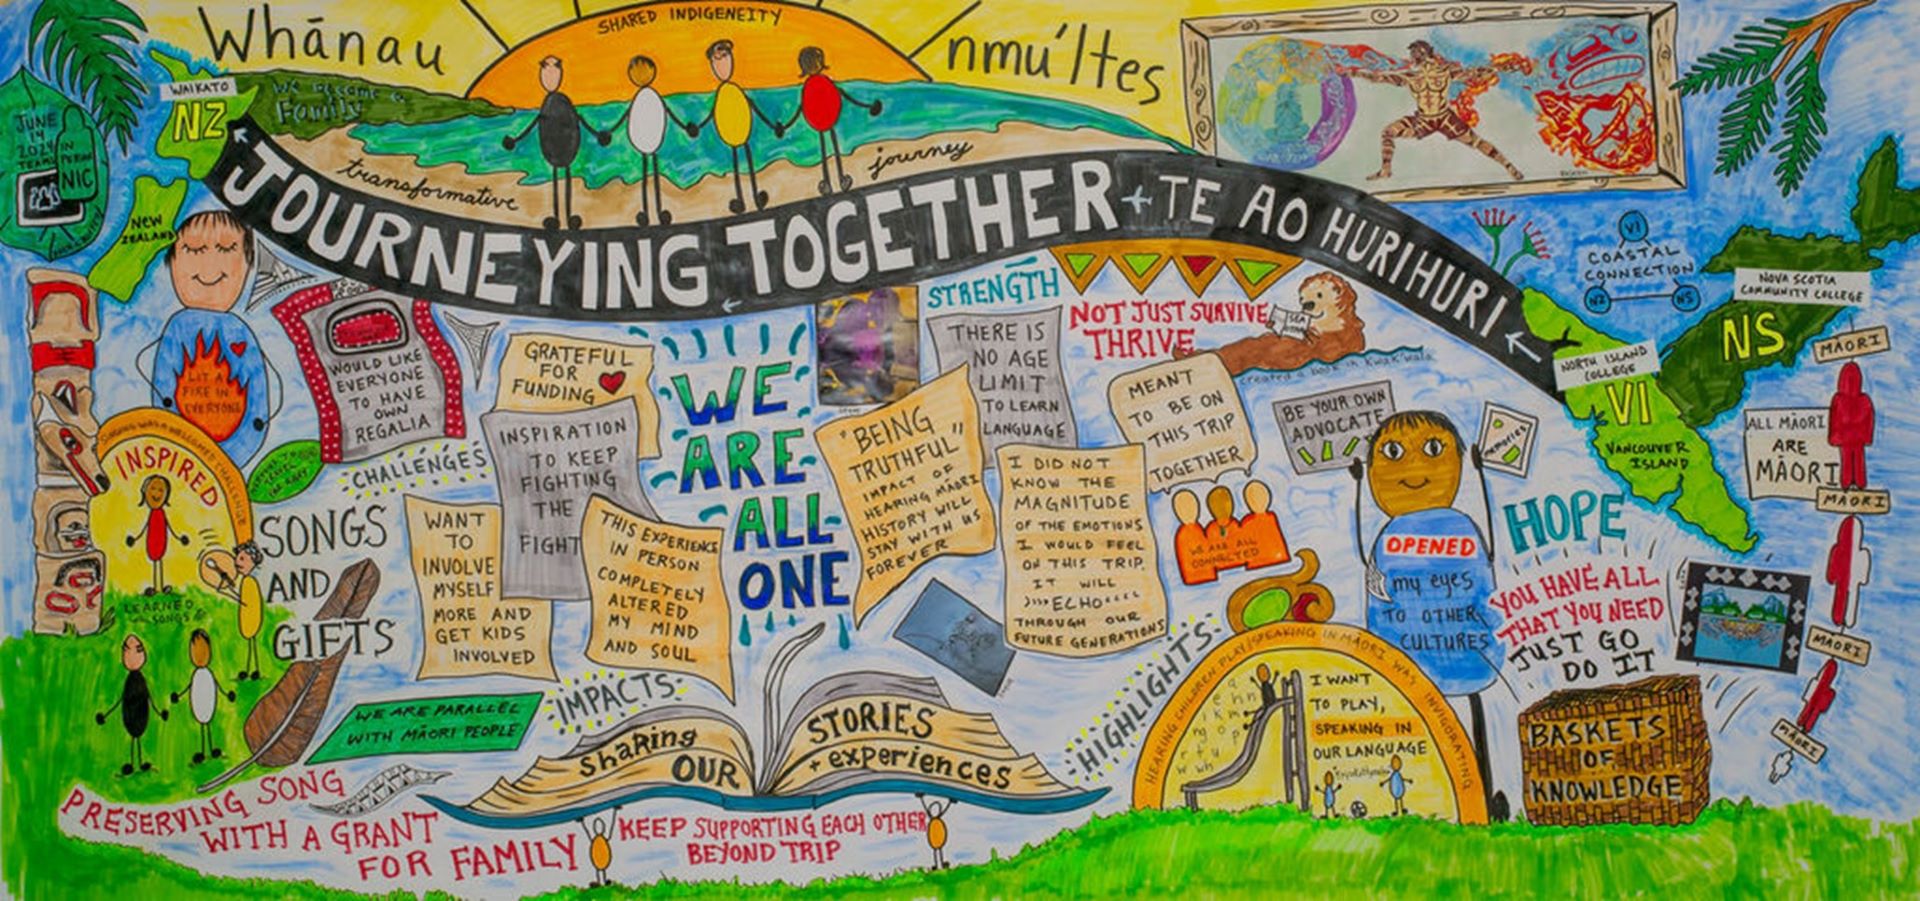 Whānau
SHARED INDIGENEITY
nmu'ltes
WAIKATO
NZ
We become a
Family
transformative
journey
JOURNEYING TOGETHER
TE AO HURIHURI
JUNE
14
2024
TEAMS
IN PERSON
NIC
NEW
ZEALAND
LIT A
FIRE IN
EVERYONE
WOULD LIKE
EVERYONE
TO HAVE
OWN
REGALIA
GRATEFUL
FOR
FUNDING
CHALLENGES
INSPIRATION
TO KEEP
FIGHTING
THE
FIGHT
WE
ARE
ALL
ONE
STRENGTH
THERE IS
NO AGE
LIMIT
TO LEARN
LANGUAGE
NOT JUST SURVIVE,
THRIVE
SEA
OTTER
created a book in Kwak'wala
"BEING
TRUTHFUL"
IMPACT OF
HEARING MĀORI
HISTORY WILL
STAY WITH US
FOREVER
MEANT
TO BE ON
THIS TRIP
TOGETHER
WE ARE ALL
CONNECTED
BE YOUR OWN
ADVOCATE
memories
VI
COASTAL
CONNECTION
NZ
NS
NOVA SCOTIA
COMMUNITY COLLEGE
NS
NORTH ISLAND
COLLEGE
VI
VANCOUVER
ISLAND
MĀORI
ALL MĀORI
ARE
MĀORI
MĀORI
MĀORI
MĀORI
SINGING WAS A WELCOMED CHALLENGE
INSPIRED
LEARNED
SONGS
SONGS
AND
GIFTS
WANT
TO
INVOLVE
MYSELF
MORE AND
GET KIDS
INVOLVED
THIS EXPERIENCE
IN PERSON
COMPLETELY
ALTERED
MY MIND
AND SOUL
I DID NOT
KNOW THE
MAGNITUDE
OF THE EMOTIONS
I WOULD FEEL
ON THIS TRIP.
IT WILL
ECHO
THROUGH OUR
FUTURE GENERATIONS
OPENED
my eyes
TO OTHER
CULTURES
HOPE
YOU HAVE ALL
THAT YOU NEED
JUST GO
DO IT
WE ARE PARALLEL
WITH MĀORI PEOPLE
IMPACTS
sharing
OUR
STORIES
+ experiences
HIGHLIGHTS
HEARING CHILDREN PLAY/SPEAKING IN MĀORI WAS INVIGORATING
I WANT
TO PLAY,
SPEAKING IN
OUR LANGUAGE
BASKETS
OF
KNOWLEDGE
PRESERVING SONG
WITH A GRANT
FOR FAMILY
KEEP SUPPORTING EACH OTHER
BEYOND TRIP